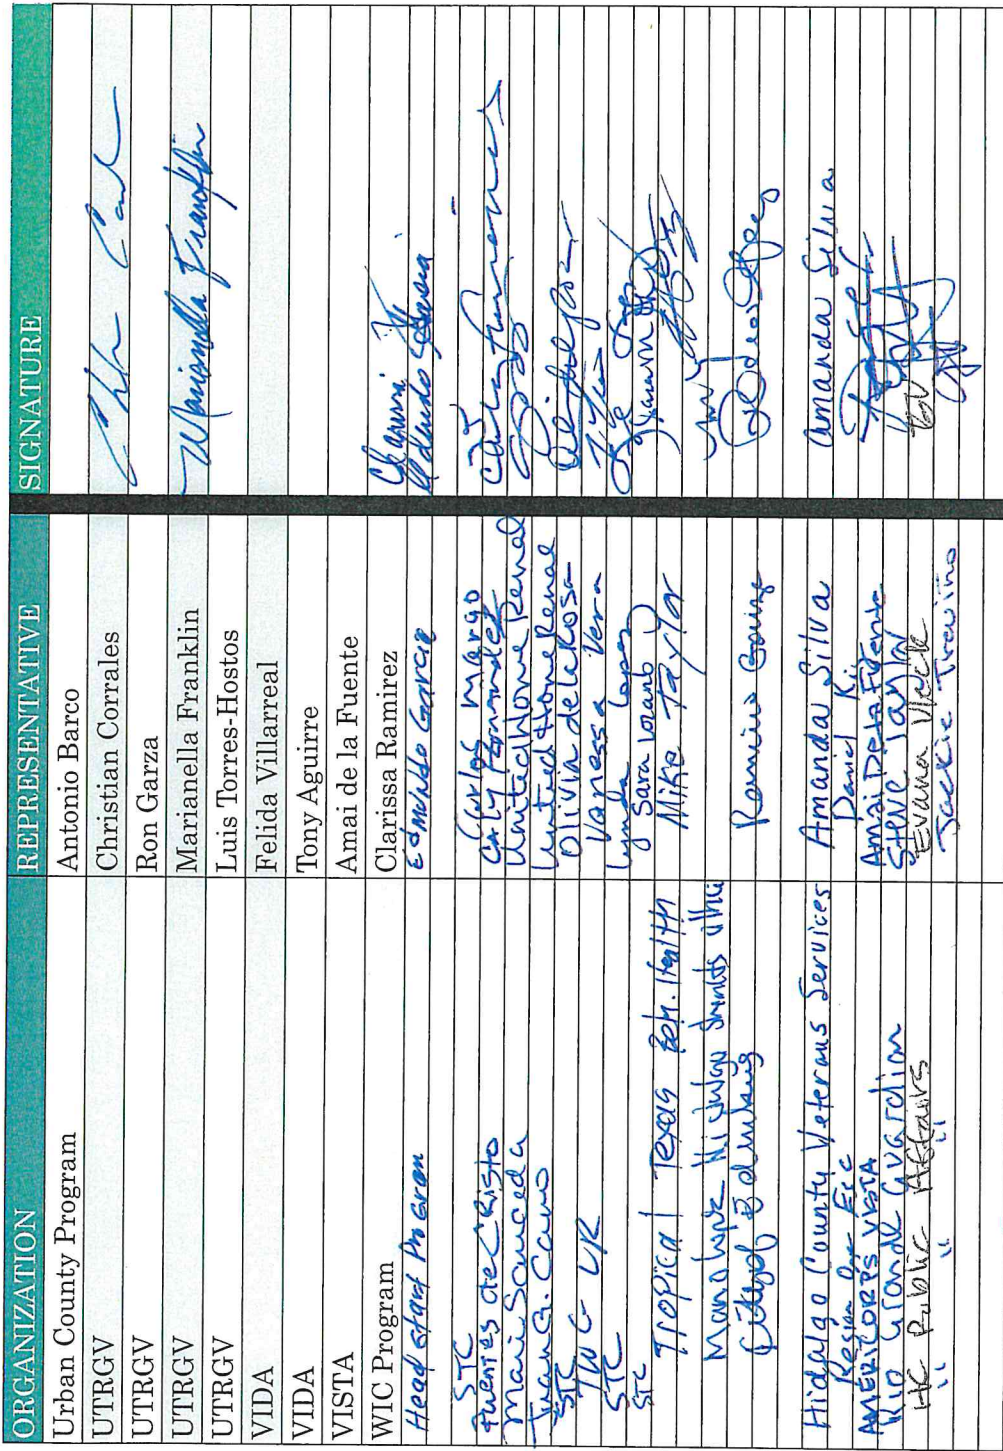 ORGANIZATION REPRESENTATIVE SIGNATURE
Urban County Program Antonio Barco
UTRGV Christian Corrales
UTRGV Ron Garza
UTRGV Marianella Franklin Marianella Franklin
UTRGV Luis Torres-Hostos
VIDA Felida Villarreal
VIDA Tony Aguirre
VISTA Amai de la Fuente
WIC Program Clarissa Ramirez
Head start Program Edmundo Garcia
STC Carlos Margo
Fuentes de Cristo
Mari Sauceda United Home Renal
Juan G. Cano United Home Renal
STC Olivia de la Rosa
TWC VR Vanessa Vera
STC Lynda Lopez
STC Sara Lozano
Tropical Texas Beh. Health Mike Taylor
Hidalgo County Veterans Services Amanda Silva Amanda Silva
Region One ESC Daniel
AMERICORPS VISTA Amai De La Fuente
Rio Grande Guardian Steve Taylor
HC Public Affairs Evana Vleck
" " " Jackie Trevino